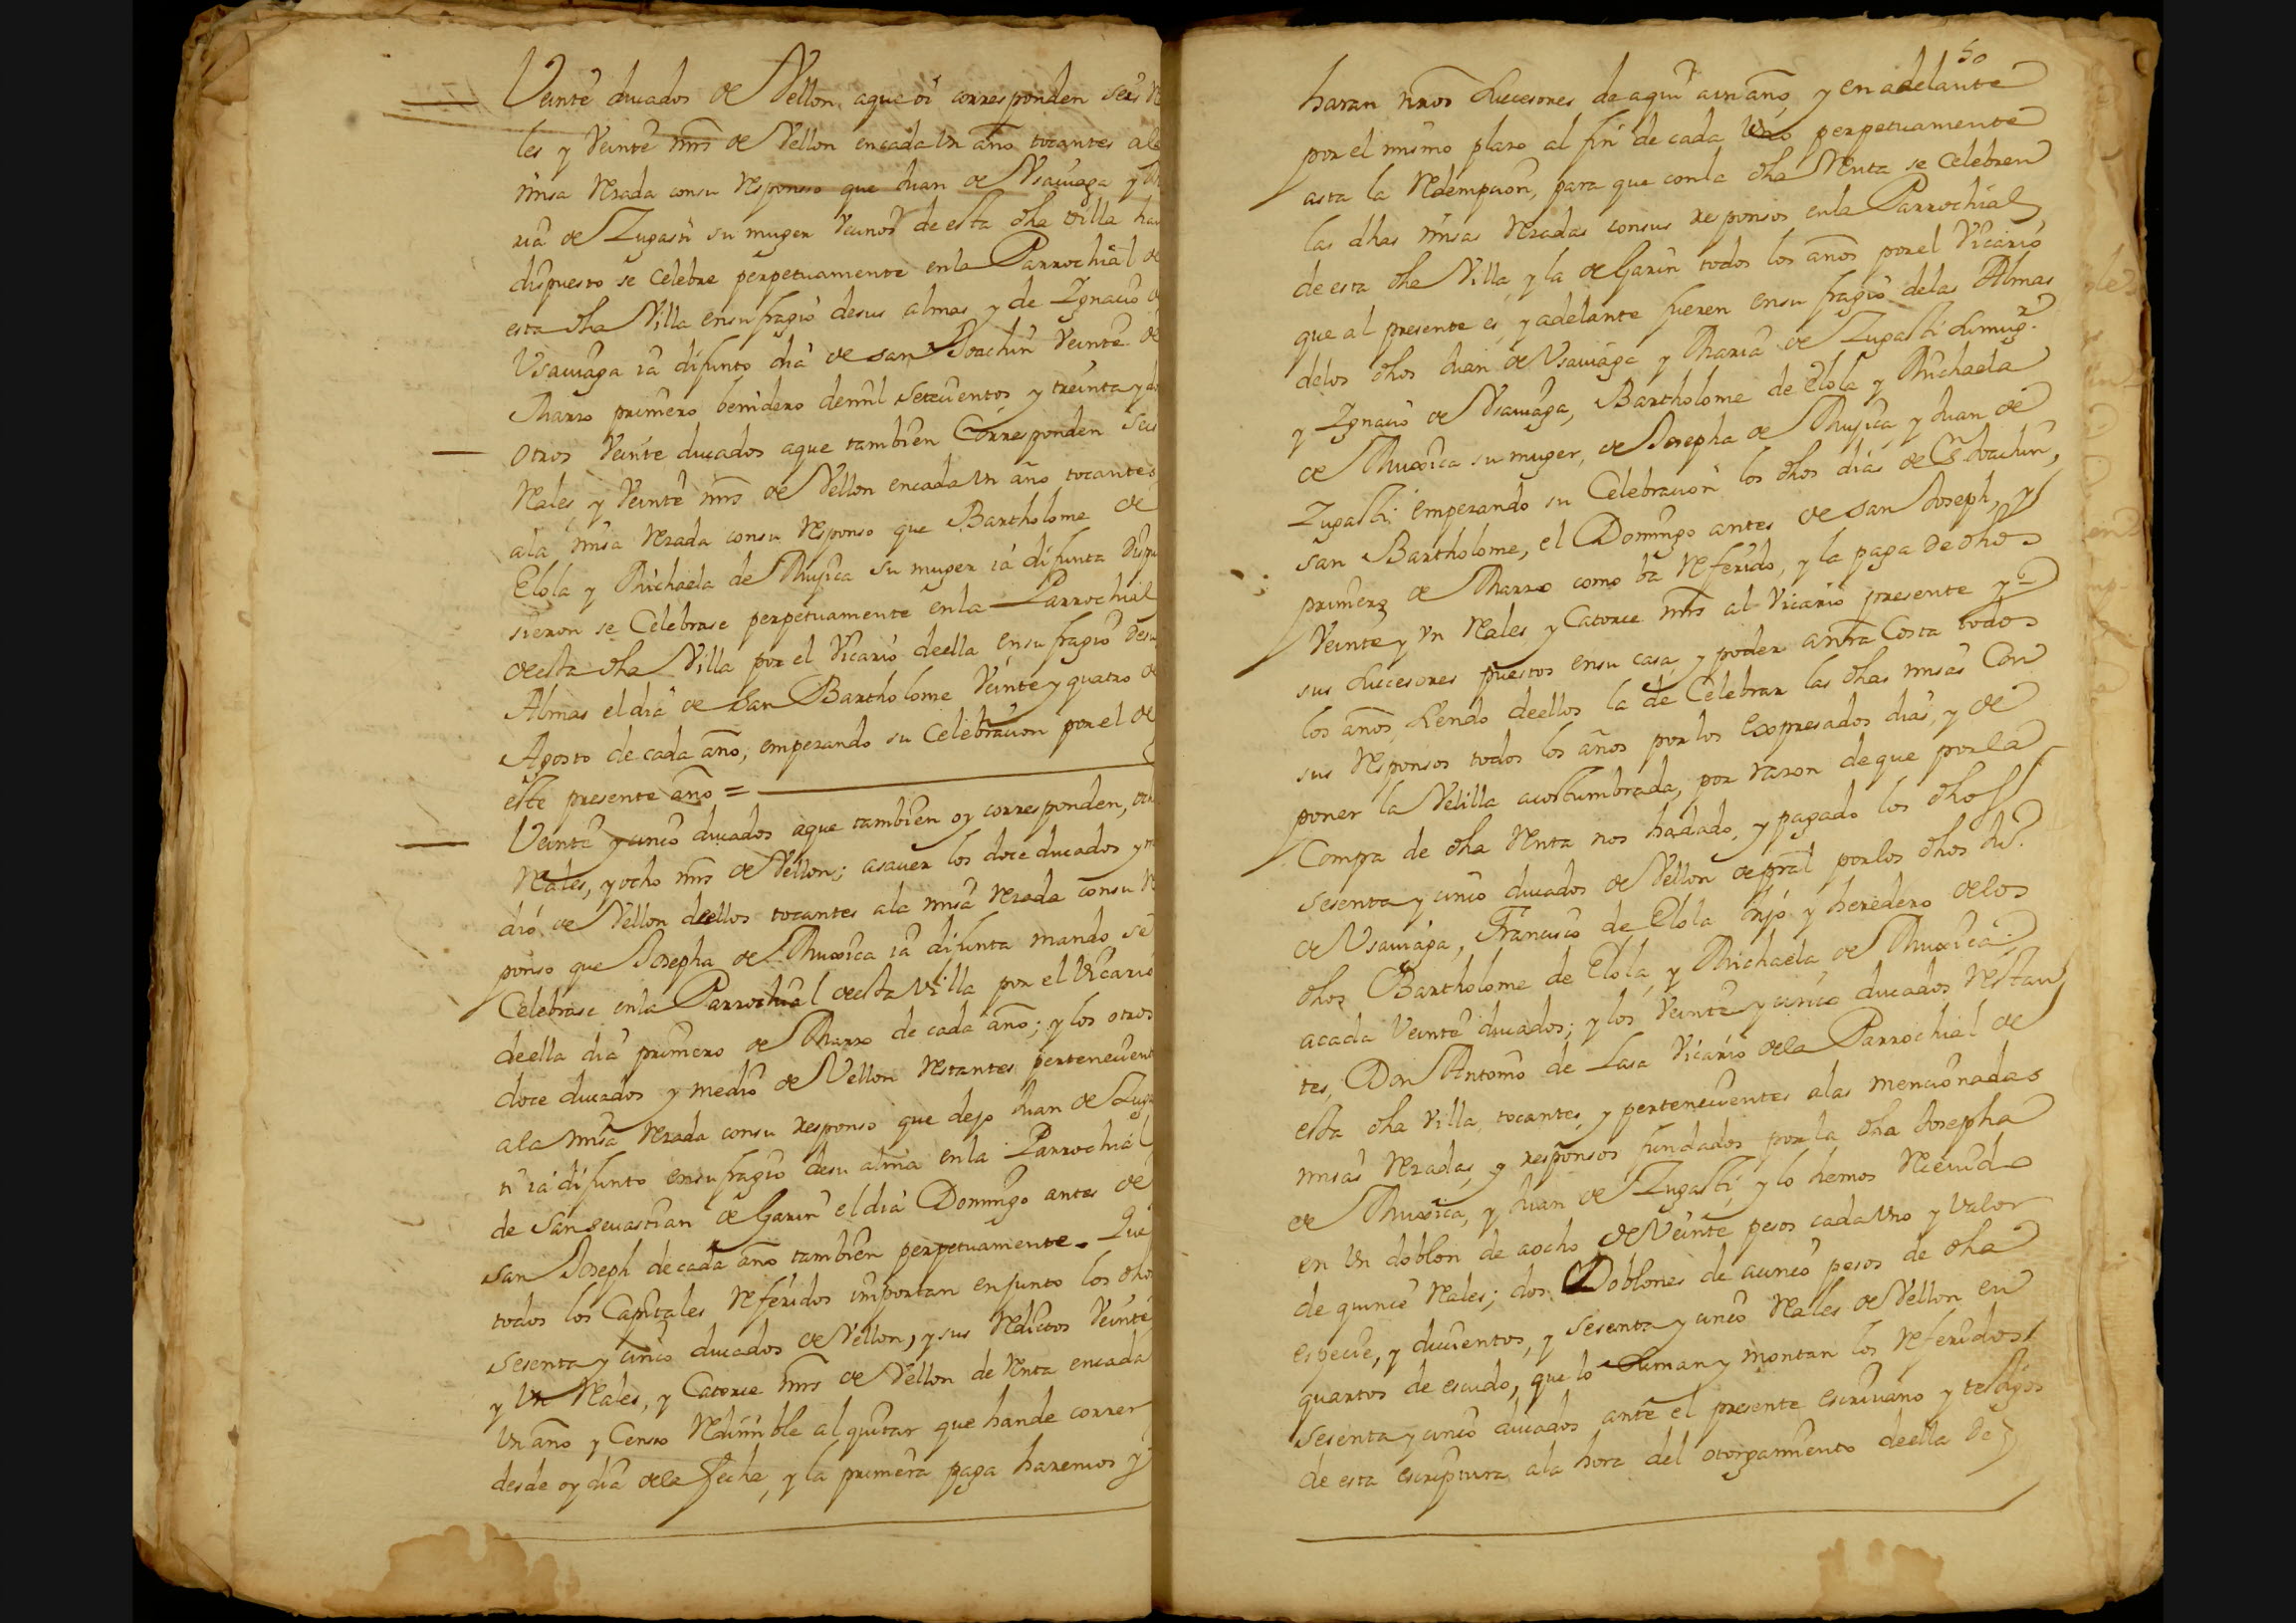 Veinte ducados de Vellon, aque oi corresponden seis R
les y Veinte mrs de Vellon encada Vn año tocantes ala
misa Rezada consu Responso que Juan de Vsauiaga y Ma
ria de Zugasti su muger vecinos de esta dha villa han
dispuesto se celebre perpetuamente enla Parrochial de
esta dha Villa ensufragio desus almas, y de Ignacio de
Vsauiaga ia difunto dia de san Joachin Veinte de
Marzo primero benidero demil setecientos y treinta y do
Otros Veinte ducados aque tambien Corresponden Seis
Reales, y Veinte mrs de Vellon encada Vn año tocantes
ala misa Rezada consu Responso que Bartholome de
Elola y Michaela de Mujica su muger ia difunta Dispu
sieron se Celebrase perpetuamente enla Parrochial
deesta dha Villa por el Vicario deella ensufragio desu
Almas el dia de San Bartholome Veinte y quatro de
Agosto de cada año, empezando su Celebracion por el de
este presente año =
Veinte y cinco ducados aque tambien oy corresponden, och
Reales, y ocho mrs de Vellon; asauer los doce ducados y me
dio de Vellon deellos tocantes ala misa Rezada consu R
ponso que Josepha de Muxica ia difunta mando se
Celebrase enla Parrochial deesta villa por el Vicario
deella dia primero de Marzo de cada año; y los otros
doce ducados y medio de Vellon Restantes perteneciente
ala misa Rezada consu responso que dejo Juan de Zuga
ti ia difunto ensufragio desu alma enla Parrochial
de San seuastian de Garin el dia Domingo antes de
san Joseph decada año tambien perpetuamente. Que
todos los Capitales Referidos importan enjunto los dhos
sesenta y cinco ducados de Vellon, y sus Reditos Veinte
y Vn Reales, y Catorce mrs de Vellon de Renta encada
Vn año y Censo Redimible alquitar que hande correr
desde oy dia dela fecha, y la primera paga haremos y
50
haran nros subcesores de aqui aun año, y en adelante
por el mismo plazo al fin de cada Vno perpetuamente
asta la Redempcion, para que conla dha Renta se Celebren
las dhas misas Rezadas consus responsos enla Parrochial
de esta dha Villa, y la de Garin todos los años por el Vicario
que al presente es, y adelante fueren ensufragio delas Almas
delos dhos Juan de Vsauiaga y Maria de Zugasti su mugr.
y Ignacio de Vsauiaga, Bartholome de Elola y Michaela
de Muxica su muger, de Josepha de Mujica, y Juan de
Zugasti; empezando su Celebracion los dhos dias de Sn Joachin,
san Bartholome, el Domingo antes de san Joseph, y
primero de Marzo como ba Referido, y la paga de dhos
Veinte y Vn Reales, y Catorce mrs al Vicario presente y a
sus subcesores puestos ensu casa, y poder anra Costa todos
los años, siendo deellos la de Celebrar las dhas misas Con
sus Responsos todos los años por los Expresados dias, y de
poner la Velilla acostumbrada, por razon de que por la
Compra de dha Renta nos hadado, y pagado los dhos
sesenta y cinco ducados de Vellon de pral por los dhos Ju.
de Vsauiaga, Francisco de Elola hijo y heredero delos
dhos Bartholome de Elola, y Michaela de Muxica
acada Veinte ducados; y los Veinte y cinco ducados Restan
tes, Don Antonio de Lasa Vicario dela Parrochial de
esta dha Villa, tocantes, y pertenecientes alas mencionadas
misas Rezadas, y responsos fundados por la dha Josepha
de Muxica, y Juan de Zugasti, y lo hemos Recivido
en Vn doblon de aocho de Veinte pesos cada Vno y Valor
de quince Reales; dos Doblones de acinco pesos de dha
especie, y ducientos, y sesenta y cinco Reales de Vellon en
quartos de escudo, que lo Suman y montan los Referidos
sesenta y cinco ducados ante el presente escriuano y testigos
de esta escriptura ala hora del otorgamiento deella De